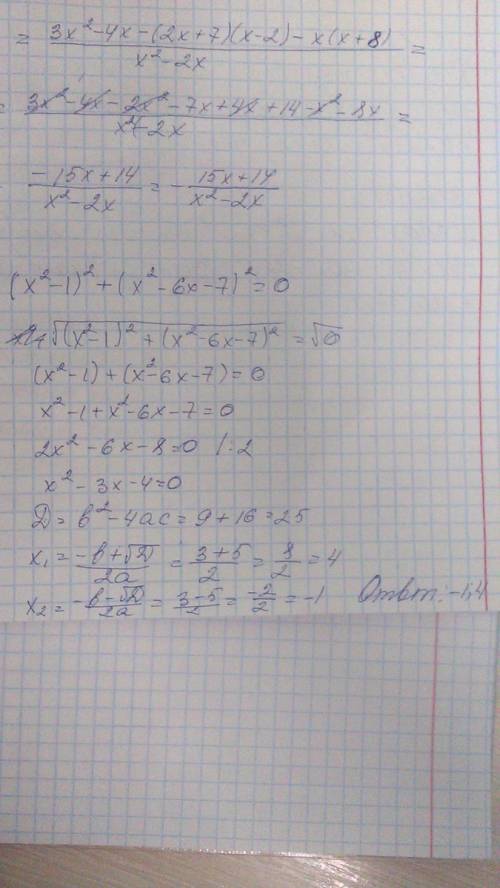 = (3x² - 4x - (2x+7)(x-2) - x(x+8))/(x² - 2x) =
= (3x² - 4x - 2x² - 7x + 4x + 14 - x² - 8x)/(x² - 2x) =
(-15x + 14)/(x² - 2x) = - (15x + 14)/(x² - 2x)
(x² - 1)² + (x² - 6x - 7)² = 0
√((x² - 1)² + (x² - 6x - 7)²) = √0
(x² - 1) + (x² - 6x - 7) = 0
x² - 1 + x² - 6x - 7 = 0
2x² - 6x - 8 = 0 /:2
x² - 3x - 4 = 0
D = b² - 4ac = 9 + 16 = 25
x₁ = (-b + √D)/2a = (3+5)/2 = 8/2 = 4
x₂ = (-b - √D)/2a = (3-5)/2 = -2/2 = -1 Ответ: -1; 4